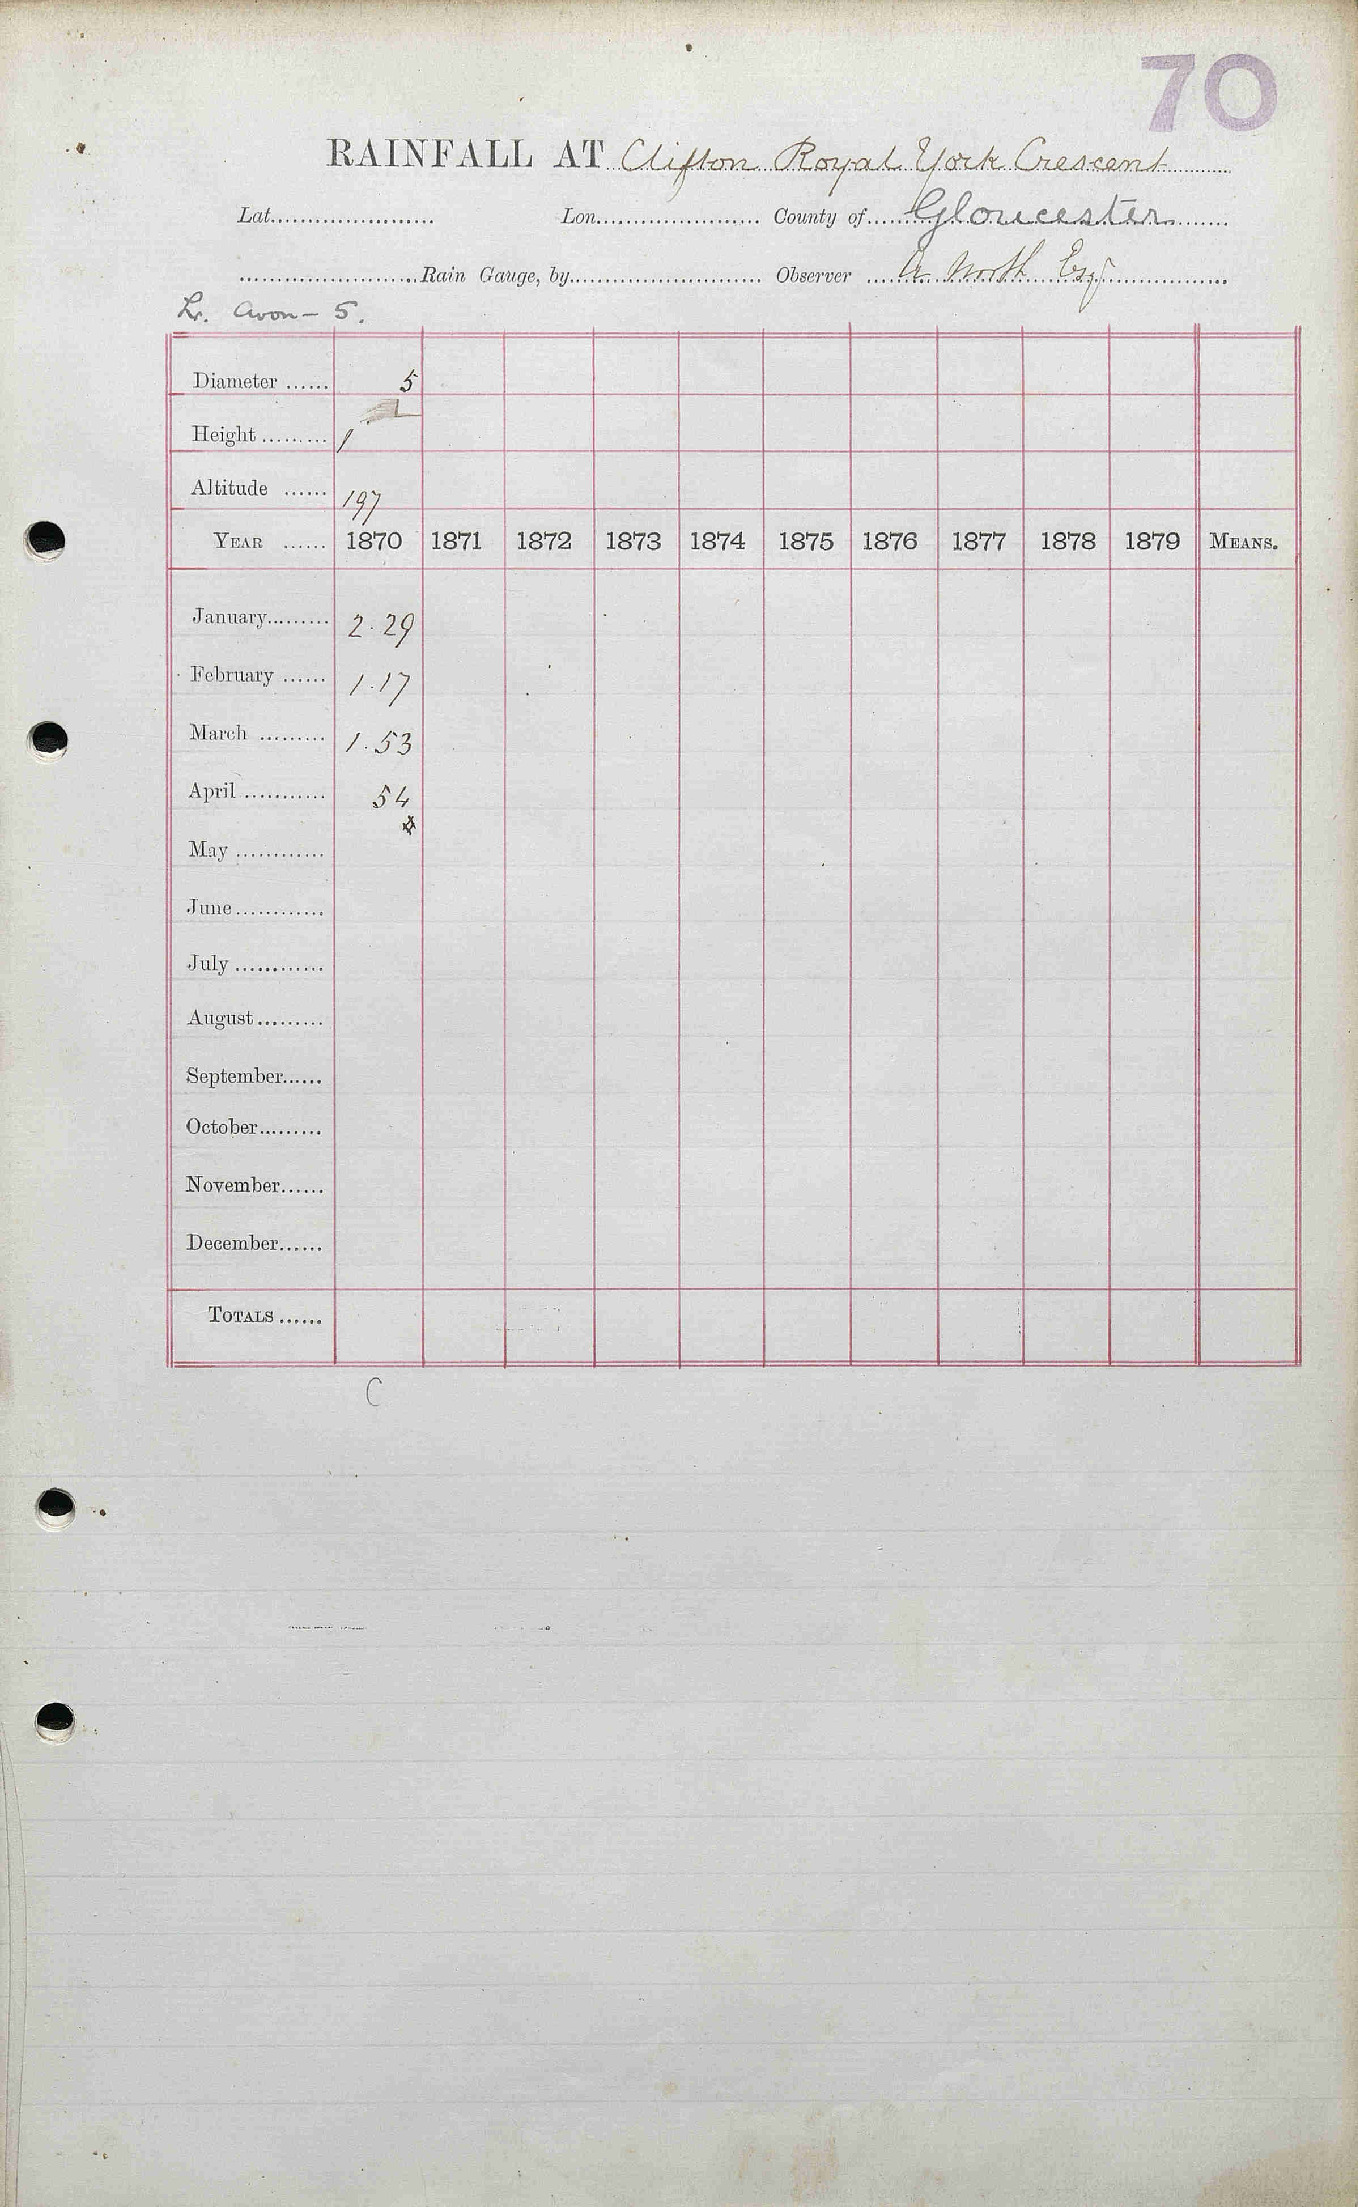 70
RAINFALL AT Clifton Royal York Crescent
Lat. Lon. County of Gloucester
Rain Gauge, by Observer North Esq
Lr. Avon - 5.
Diameter 5
Height 1
Altitude 197
YEAR 1870 1871 1872 1873 1874 1875 1876 1877 1878 1879 MEANS.
January 2.29
February 1.17
March 1.53
April 54
May
June
July
August
September
October
November
December
TOTALS
C